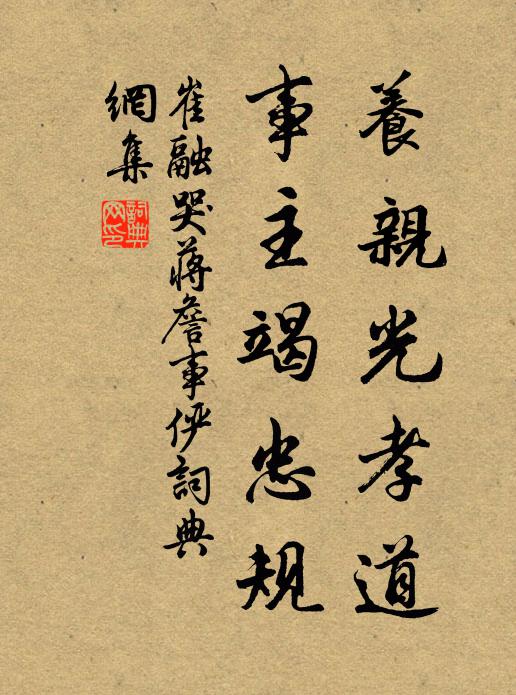 養親光孝道
事主竭忠規
崔融哭蔣詹事俨詞典
網集
詞典
网印